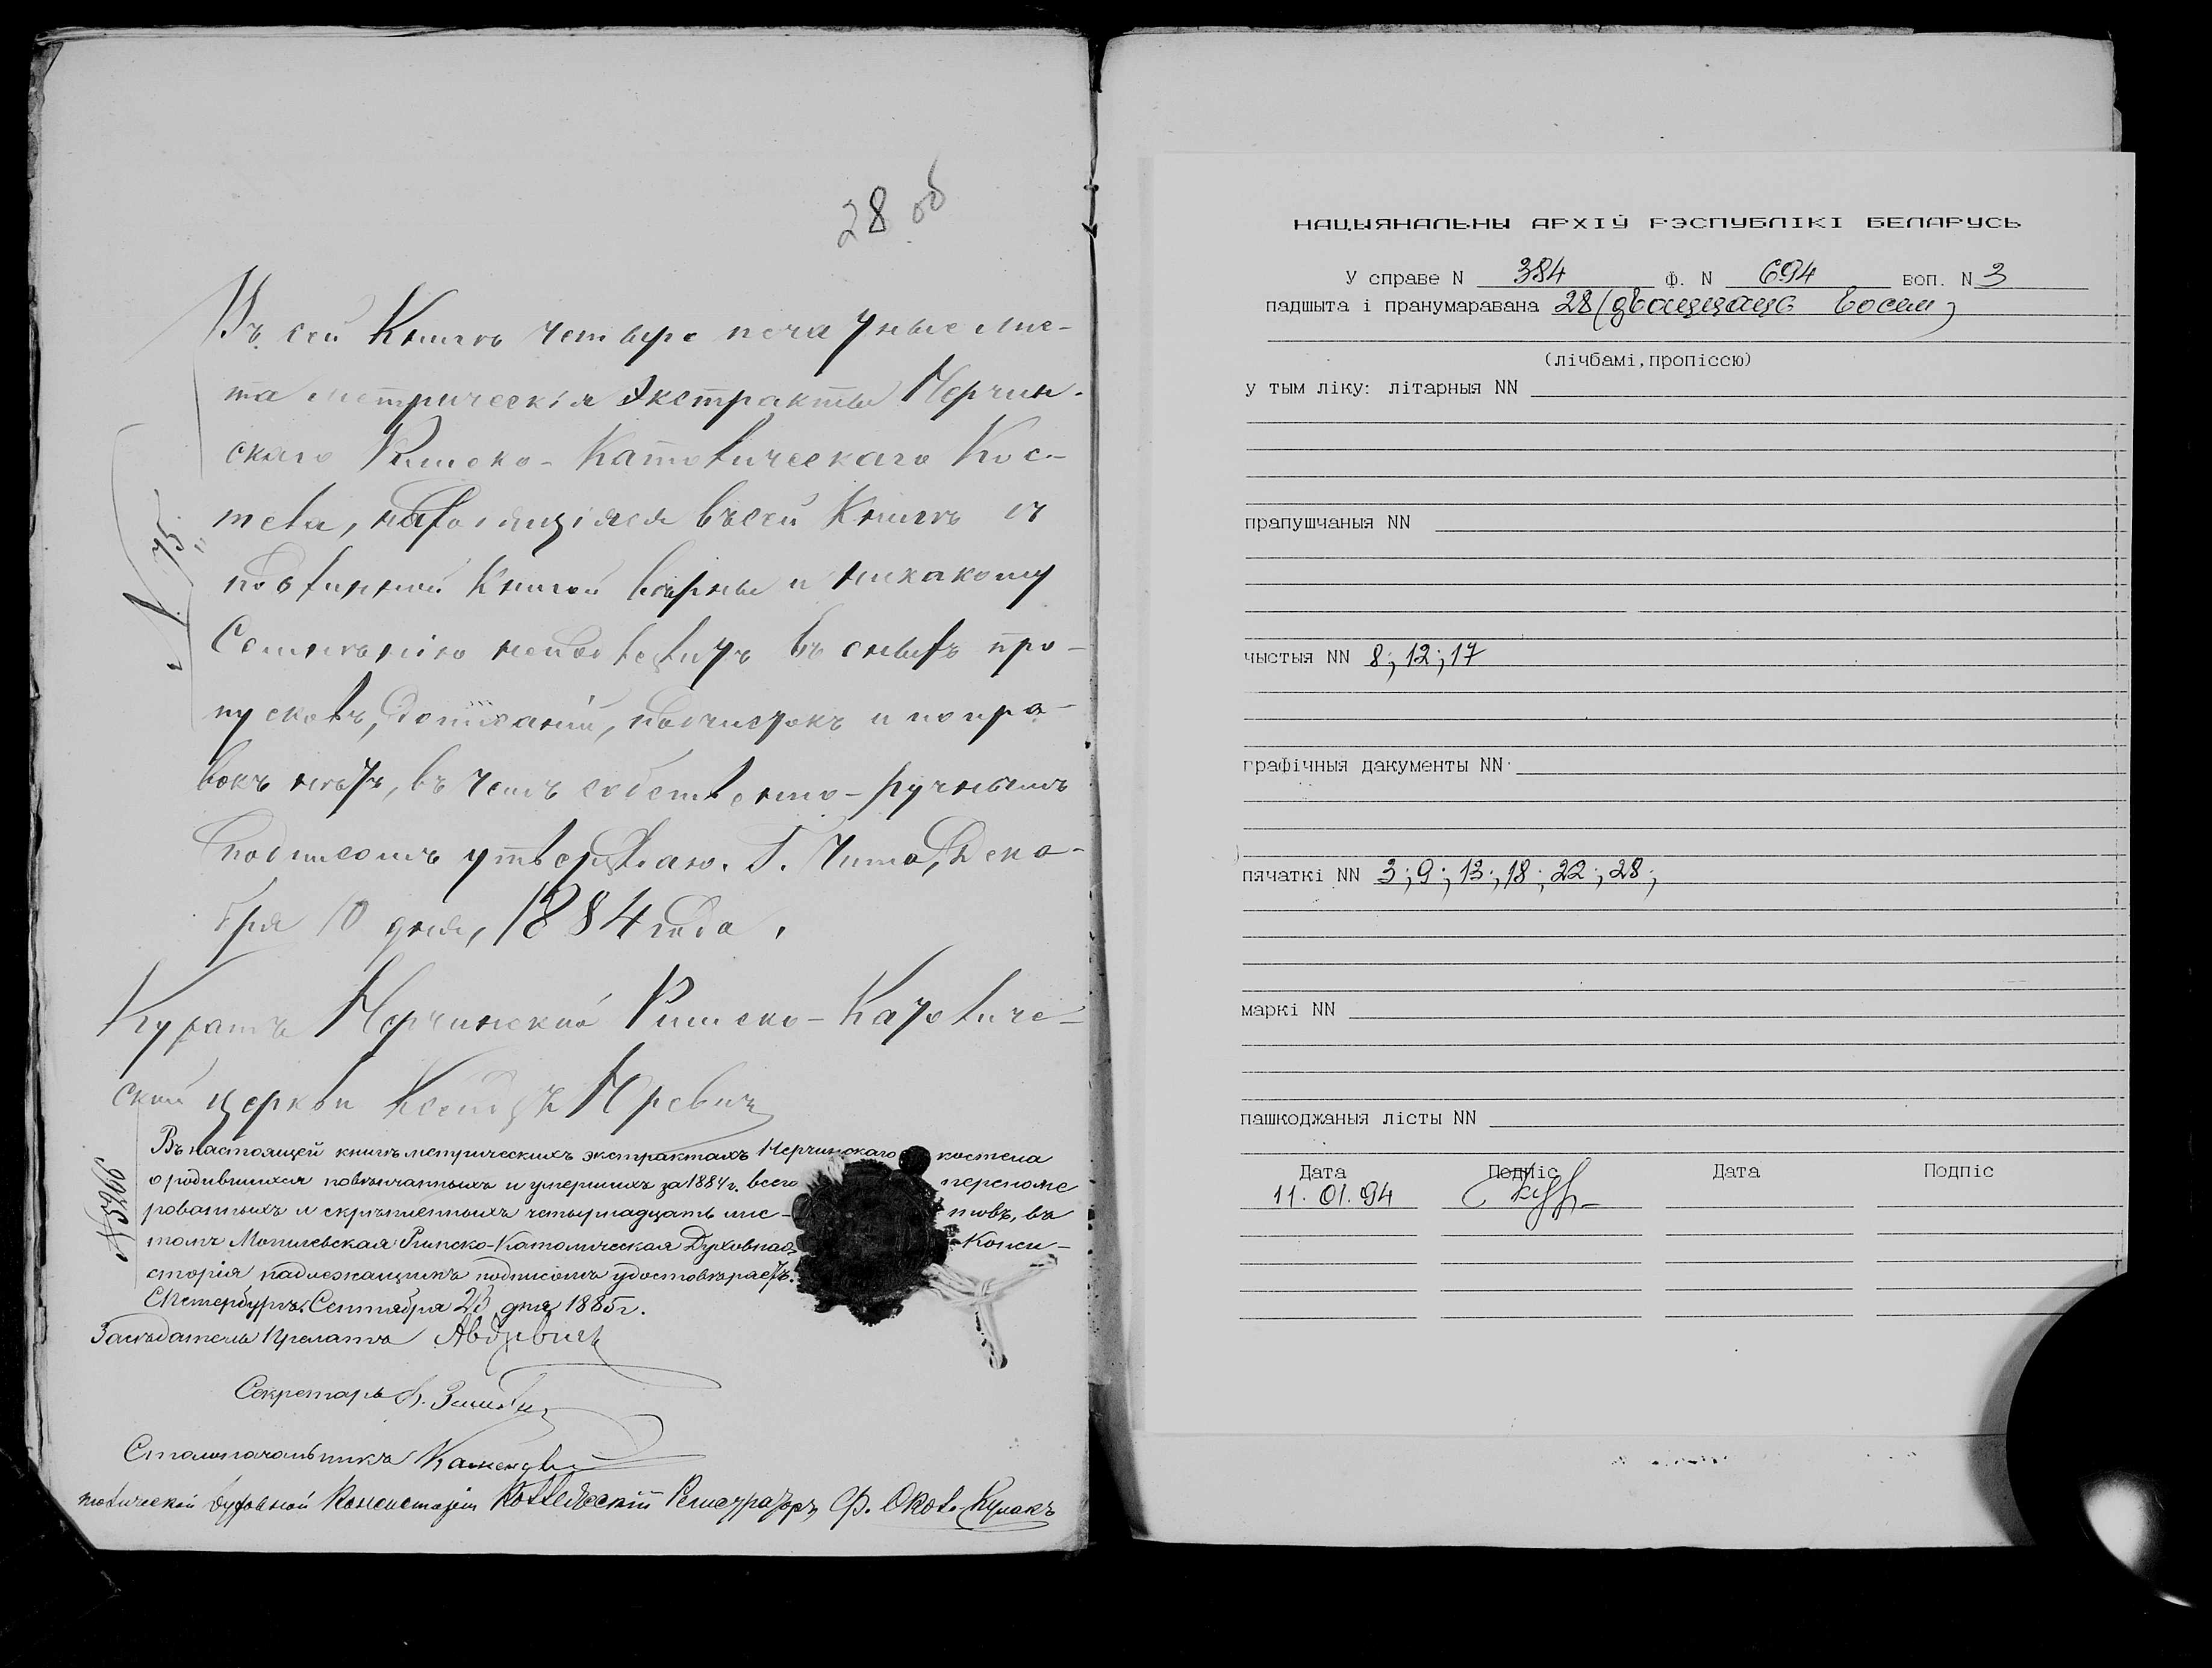 28 об
Въ сей Книгѣ четыре печатные лис-
та метрическія Экстракты Нерчин-
скаго Римско-Католическаго Кос-
тела, находящіяся въ сей Книгѣ съ
подлинной Книгой вѣрны и никакому
Сомнѣнію неподлежитъ въ оныхъ про-
пусковъ, дописаній, подчистокъ и попра-
вокъ нѣтъ, въ чемъ собственно-ручнымъ
подписомъ утверждаю. Г. Чита, Дека-
бря 10 дня, 1884 года.
N 75.
Куратъ Нерчинской Римско-Католиче-
ской церкви Ксендзъ
Въ настоящей книгѣ метрическихъ экстрактахъ Нерчинскаго костела
о родившихся повѣнчанныхъ и умершихъ за 1884 г. всего переноме
рованныхъ и скрѣпленныхъ четырнадцать лис- товъ, въ
томъ Могилевская Римско-Католическая Духовная Конси-
сторія надлежащимъ подписомъ удостовѣряетъ.
СПетербургъ, Сентября 23 дня 1885 г.
N 5366
Засѣдатель Прелатъ
Секретарь
Столоначальникъ
толической Духовной Консисторіи Коллежскій Регистраторъ Ф. Окол-Кулакъ
НАЦЫЯНАЛЬНЫ АРХІЎ РЭСПУБЛІКІ БЕЛАРУСЬ
У справе N 384 Ф. N 694 воп. N 3
падшыта і пранумаравана 28 (дваццаць восем)
(лічбамі, пропіссю)
у тым ліку: літарныя NN
прапушчаныя NN
чыстыя NN 8; 12; 17
графічныя дакументы NN
пячаткі NN 3; 9; 13; 18; 22; 28;
маркі NN
пашкоджаныя лісты NN
Дата Подпіс Дата Подпіс
11. 01. 94